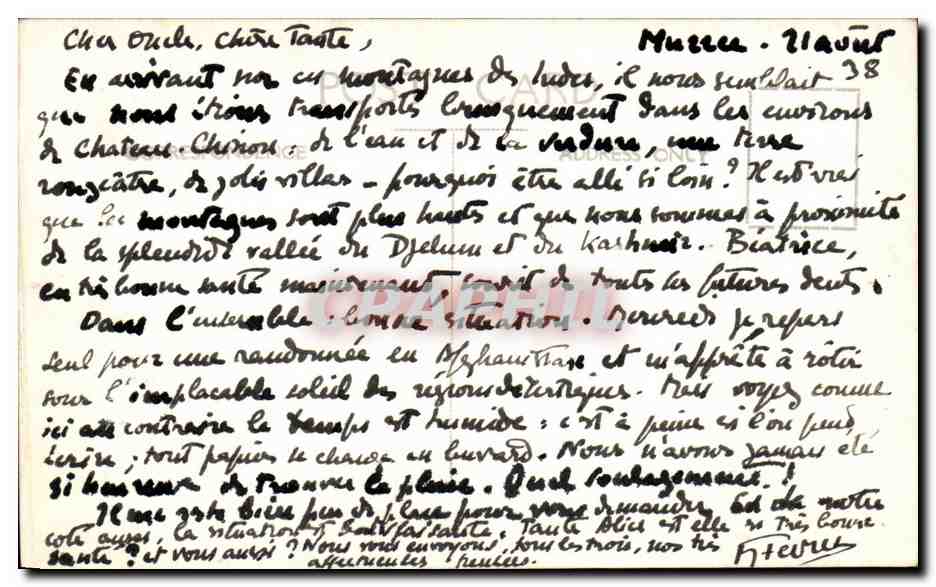 Cher Oncle, Chère Tante,
Murree - 21 août 38
POST CARD
En arrivant sur ces montagnes des Indes, il nous semblait
que nous étions transportés brusquement dans les environs
de Chateau-Chinon : de l'eau et de la verdure, une terre
CORRESPONDENCE
ADDRESS ONLY
rougeâtre, de jolis villas - pourquoi être allé si loin ? Il est vrai
que les montagnes sont plus hautes et que nous sommes à proximité
de la splendide vallée du Djelum et du Kashmir. Béatrice,
en très bonne santé maintenant, sourit de toutes ses futures dents.
CPAPHIL
Dans l'ensemble : bonne situation. Mercredi je repars
seul pour une randonnée en Afghanistan et m'apprête à rôtir
sous l'implacable soleil des régions désertiques. Mais voyez comme
ici au contraire le temps est humide : c'est à peine si l'on peut
écrire ; tout papier se change en buvard. Nous n'avons jamais été
si heureux de trouver la pluie. Quel soulagement !
Il me reste bien peu de place pour vous demander si de votre
coté aussi, la situation est satisfaisante. Tante Alice est elle en très bonne
santé ? et vous aussi ? Nous vous envoyons, tous les trois, nos très
affectueuses pensées.